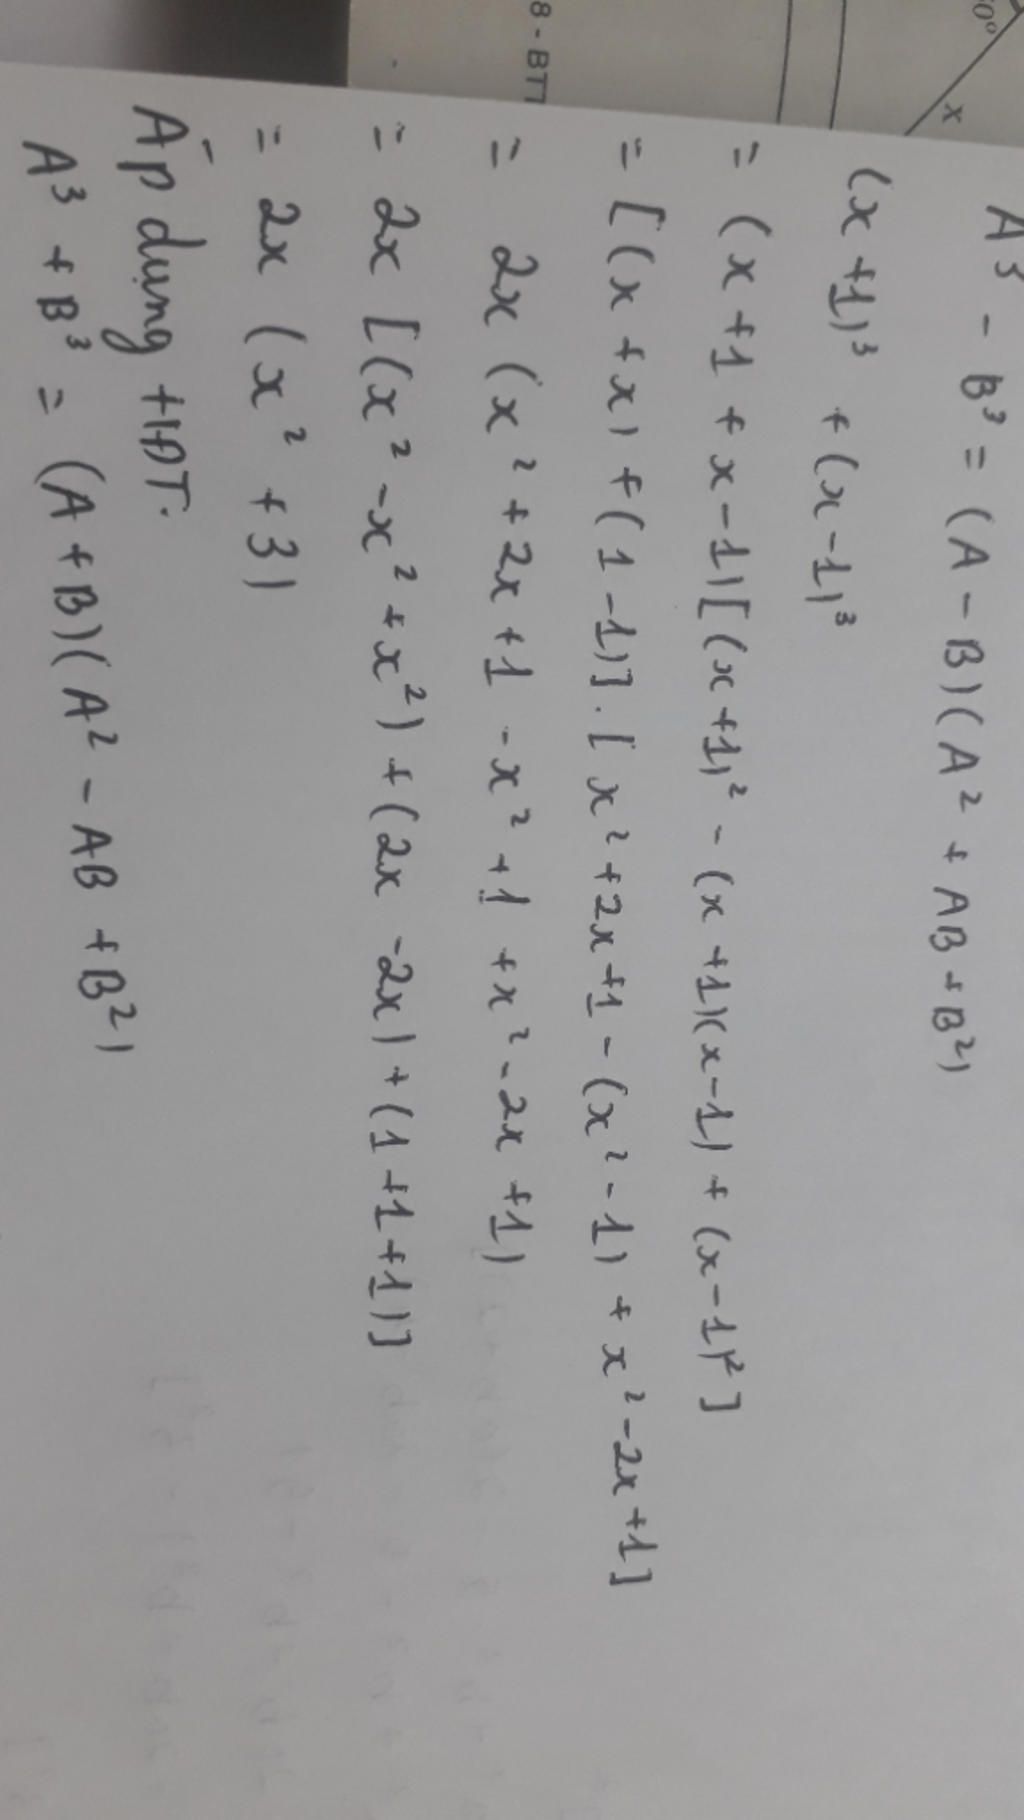 8 - BTT
x
A³ - B³ = (A - B)(A² + AB + B²)
(x + 1)³ + (x - 1)³
= (x + 1 + x - 1)[(x + 1)² - (x + 1)(x - 1) + (x - 1)²]
= [(x + x) + (1 - 1)] . [x² + 2x + 1 - (x² - 1) + x² - 2x + 1]
= 2x (x² + 2x + 1 - x² + 1 + x² - 2x + 1)
= 2x [(x² - x² + x²) + (2x - 2x) + (1 + 1 + 1)]
= 2x (x² + 3)
Áp dụng HĐT.
A³ + B³ = (A + B)(A² - AB + B²)